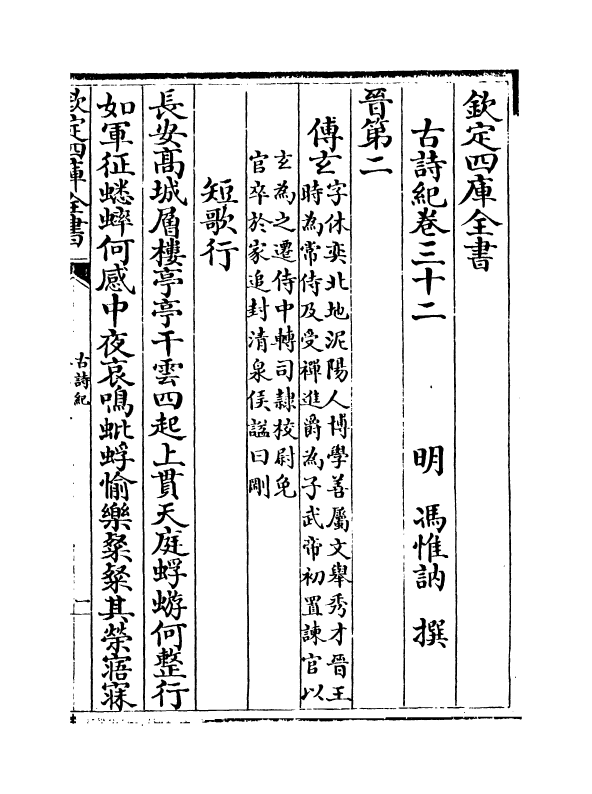 欽定四庫全書
古詩紀卷三十二　明　馮惟訥　撰
晉第二
傅玄字休奕北地泥陽人博學善屬文舉秀才晉王
時為常侍及受禪進爵為子武帝初置諫官以
玄為之遷侍中轉司隷校尉免
官卒於家追封清泉侯諡曰剛
短歌行
長安髙城層樓亭亭干雲四起上貫天庭蜉蝣何整行
如軍征蟋蟀何感中夜哀鳴蚍蜉愉樂粲粲其榮寤寐
欽定四庫全書
古詩紀
一